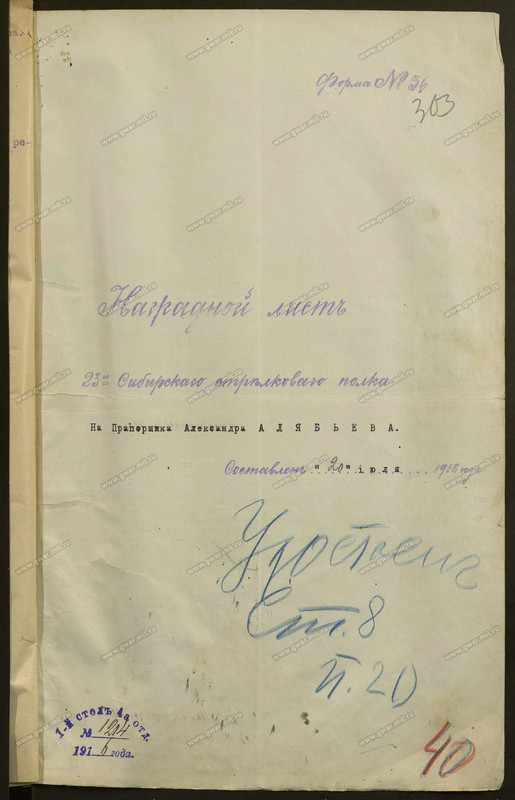 Форма № 36
303
Наградной листъ
23го Сибирскаго стрѣлковаго полка
На Прапорщика Александра АЛЯБЬЕВА.
Составленъ "20" іюля 1916 года
Удостоенъ
Ст. 8
п. 20
1-й столъ 4а отд.
№ 1204
1916 года.
40
www.gwar.mil.ru